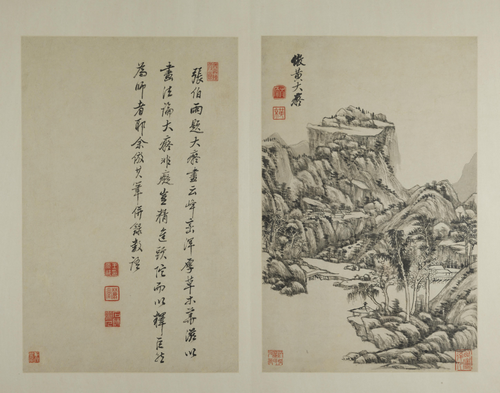 倣黃大癡
張伯雨題大癡畫云峰巒渾厚草木華滋以
畫法論大癡非癡豈精進頭陀而以釋巨然
為師者耶余倣其筆併錄數語